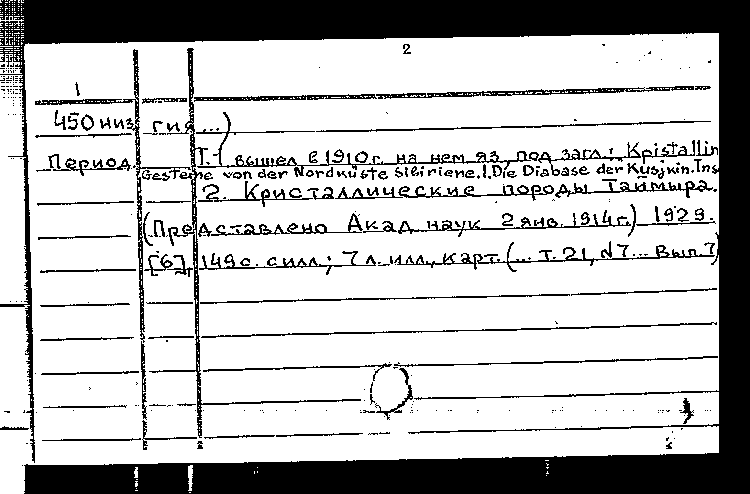 2
1
450 низ гия...)
Период Т. 1 вышел в 1910 г. на нем яз. под загл.: Kristallin
Gesteine von der Nordküste Sibiriens. I. Die Diabase der Kusjkin. Ins
2. Кристаллические породы Таймыра.
(Представлено Акад наук 2 янв. 1914 г.) 1929.
[6], 149 с. с илл.; 7 л. илл., карт. (... т. 21, N 7... Вып. 7)